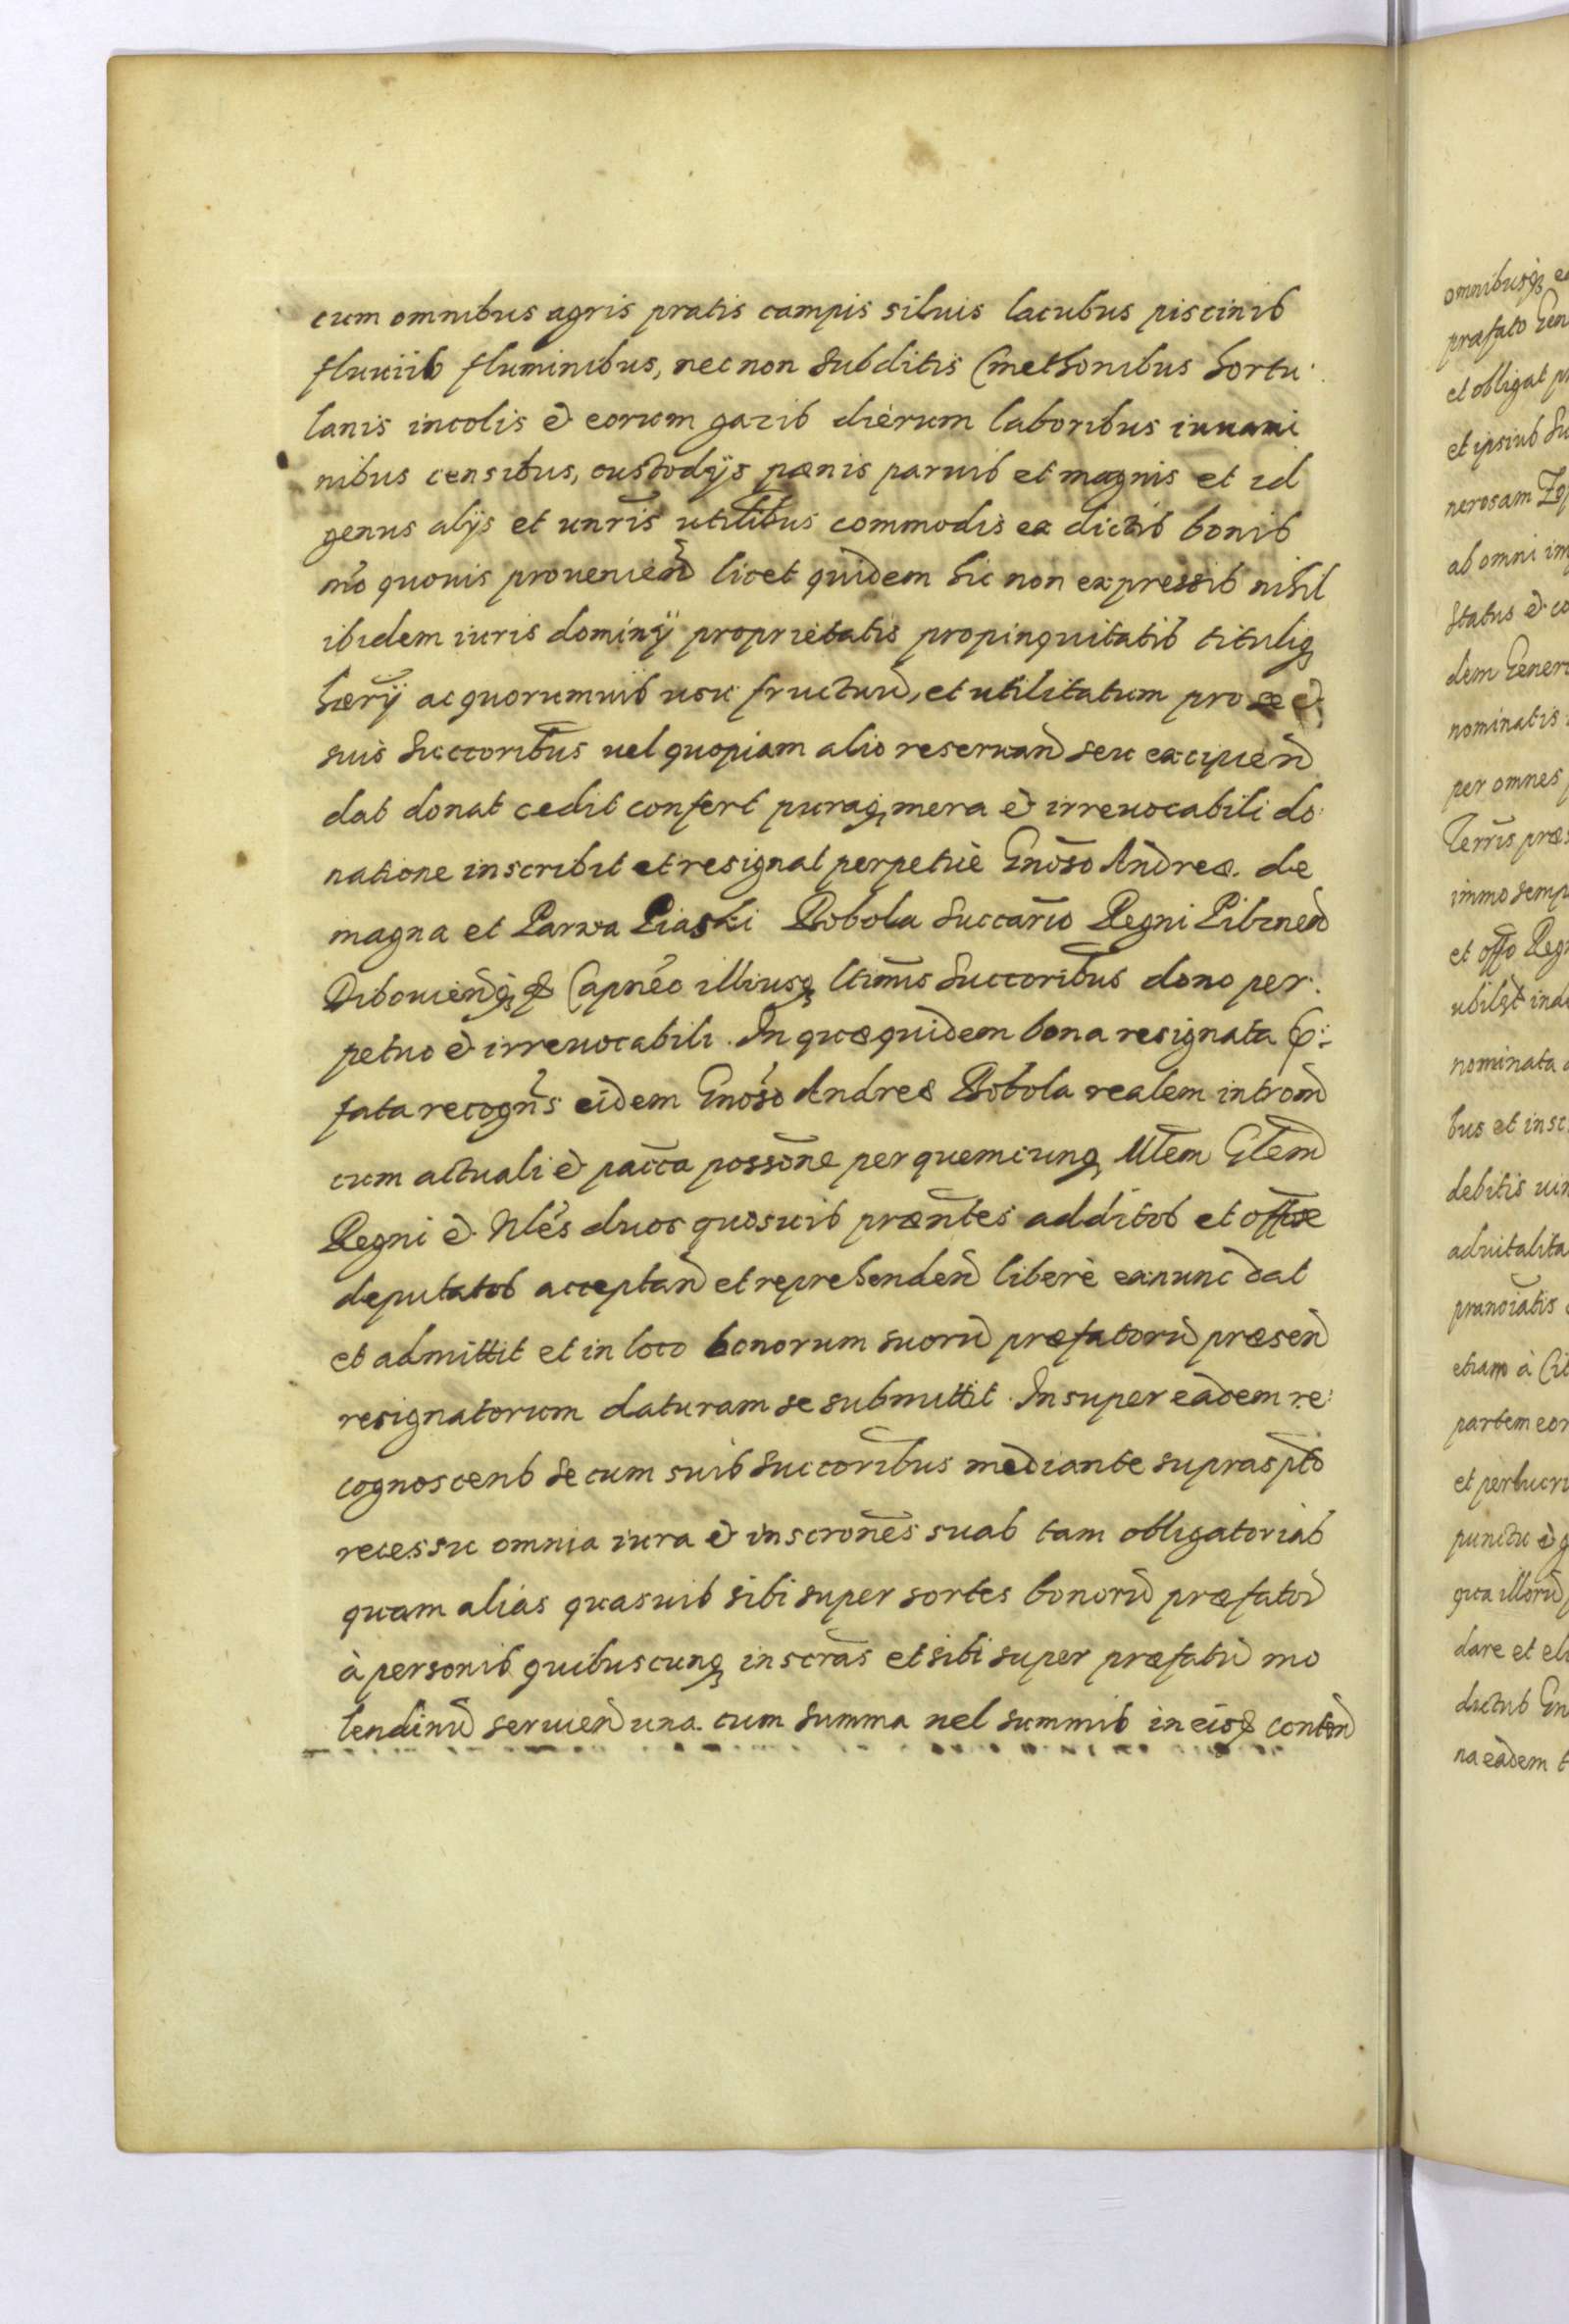 cum omnibus agris pratis campis siluis lacubus piscinis
fluuiis fluminibus, nec non subditis Cmethonibus hortu
lanis incolis et eorum gazis dierum laboribus iuuami
nibus censibus, custodijs pænis paruis et magnis et id
genus alijs et unris utilibus commodis ex dictis bonis
mō quouis prouenieñ licet quidem hic non expressis nihil
ibidem iuris dominij proprietatis propinquitatis tituliq;
hærij ac quorumuis usu fructuū, et utilitatum pro se et
suis succoribus uel quopiam alio reseruañ seu excipieñ
dat donat cedit confert puraq; mera et irreuocabili do
natione inscribit et resignat perpetuè Gnōso Andreæ de
magna et Parwa Piaski Bobola Succario Regni Pilzneñ
Diboviens q; &c Capnēo illiusq; ltimis Succoribus dono per
petuo et irreuocabili. In quæquidem bona resignata p:
fata recogñs eidem Gnōso Andreæ Bobola realem introm̄
cum actuali et pacca possōne per quemcunq; Mlem Glem
Regni et Nles duos quosuis præntes additos et offōse
deputatos acceptañ et reprehendeñ liberè exnunc dat
et admittit et in loco bonorum suorū præfatorū præseñ
resignatorum daturam se submittit. Insuper eadem re:
cognoscens se cum suis succoribus mediante supraspto
recessu omnia iura et inscrones suas tam obligatorias
quam alias quasuis sibi super sortes bonorū præfator
à personis quibuscunq; inscras et sibi super præfatū mo
lendinū seruieñ una cum summa uel summis in eisd conteñ
omnibusq; e
præfato Gen
et obligat p
et ipsius su
nerosam Zo
ab omni im
status et co
dem Gener
nominatis
per omnes
Terris præ
immo semp
et offo Reg
ubilꝫ ind
nominata
bus et insc
debitis uin
aduitalita
pranoiatis
etiam à Ci
partem eor
et perlucru
punctu et q
qua illorū
dare et el
ductus Gn
na eadem t